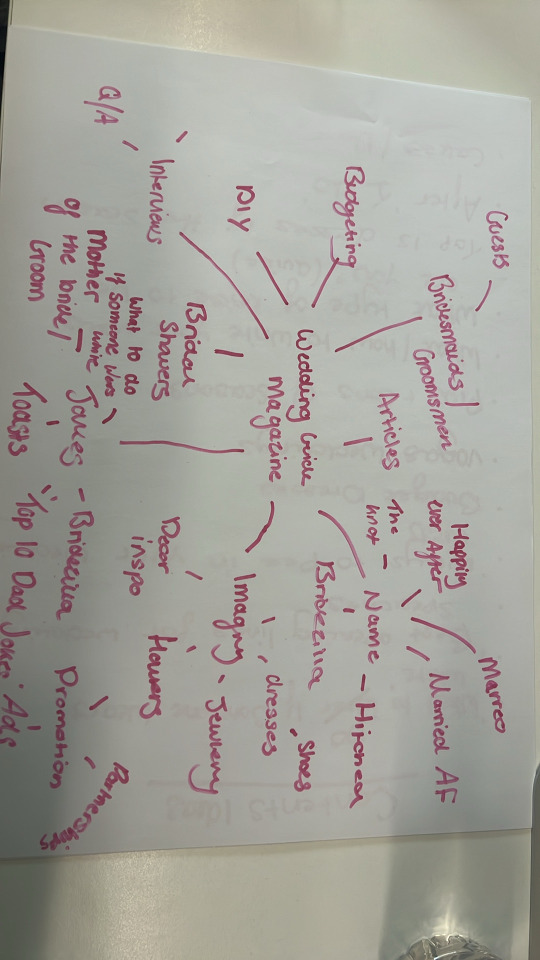 Guests
Bridesmaids /
Groomsmen
Budgeting
DIY
Interviews
Q/A
Articles
Wedding Guide
Magazine
Bridal
Showers
Happily
ever After
The
Knot -
Name - Hitched
Married AF
Bridezilla
Imagry - Jewlery
dresses
Shoes
Decor
inspo
Flowers
what to do
if someone wears
white
Mother
of the bride/
Groom
Jokes - Bridezilla
Toasts
Top 10 Dad Jokes
Promotion
Ads
Partnerships